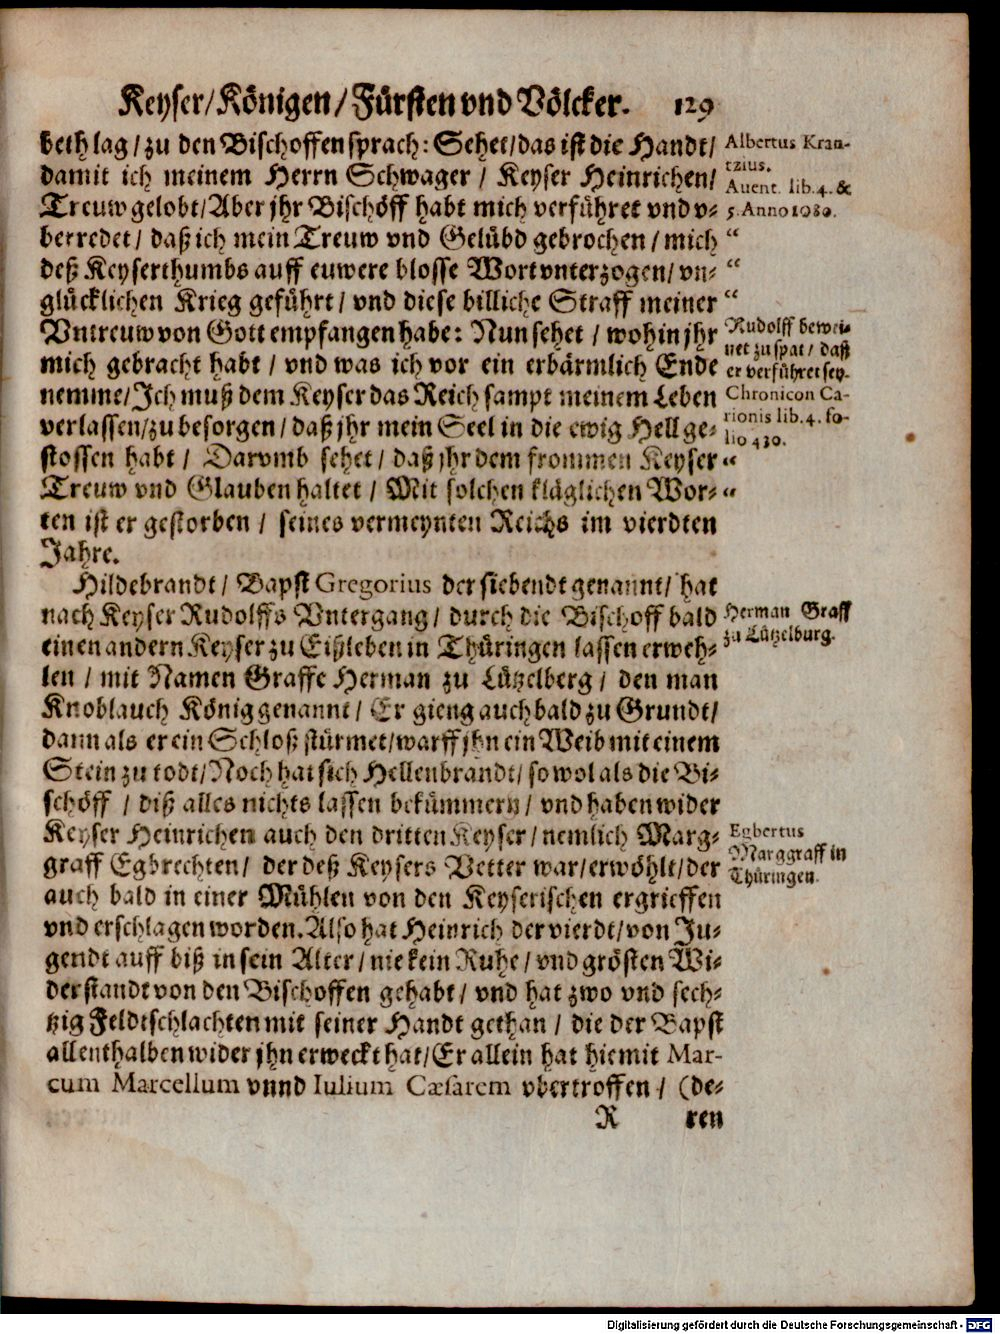 Keyser/Königen/Fürsten vnd Völcker. 129
beth lag/zu den Bischoffen sprach: Sehet/das ist die Handt/
damit ich meinem Herrn Schwager / Keyser Heinrichen/
Treuw gelobt/Aber jhr Bischöff habt mich verführet vnd v-
berredet/ daß ich mein Treuw vnd Gelübd gebrochen/ mich “
deß Keyserthumbs auff euwere blosse Wort vnterzogen/ vn- “
glücklichen Krieg geführt/ vnd diese billiche Straff meiner “
Vntreuw von Gott empfangen habe: Nun sehet / wohin jhr
mich gebracht habt / vnd was ich vor ein erbärmlich Ende
nemme/Ich muß dem Keyser das Reich sampt meinem Leben
verlassen/zu besorgen/ daß jhr mein Seel in die ewig Hell ge-
stossen habt / Darvmb sehet/ daß jhr dem frommen Keyser “
Treuw vnd Glauben haltet / Mit solchen kläglichen Wor- “
ten ist er gestorben / seines vermeynten Reichs im vierdten
Jahre.
Hildebrandt/ Bapst Gregorius der siebendt genannt/ hat
nach Keyser Rudolffs Vntergang/ durch die Bischoff bald
einen andern Keyser zu Eißleben in Thüringen lassen erweh-
len / mit Namen Graffe Herman zu Lützelberg / den man
Knoblauch König genannt/ Er gieng auch bald zu Grundt/
dann als er ein Schloß stürmet/warff jhn ein Weib mit einem
Stein zu todt/Noch hat sich Hellenbrandt/ so wol als die Bi-
schöff / diß alles nichts lassen bekümmern/ vnd haben wider
Keyser Heinrichen auch den dritten Keyser/ nemlich Marg-
graff Egbrechten/ der deß Keysers Vetter war/erwöhlt/der
auch bald in einer Mühlen von den Keyserischen ergrieffen
vnd erschlagen worden. Also hat Heinrich der vierdt/von Ju-
gendt auff biß in sein Alter/ nie kein Ruhe/ vnd grösten Wi-
derstandt von den Bischoffen gehabt/ vnd hat zwo vnd sech-
tzig Feldtschlachten mit seiner Handt gethan / die der Bapst
allenthalben wider jhn erweckt hat/Er allein hat hiemit Mar-
cum Marcellum vnnd Iulium Cæsarem vbertroffen / (de-
R ren
Albertus Kran-
tzius.
Auent. lib. 4. &
5. Anno 1080.
Rudolff bewei-
net zu spat/ daß
er verführet sey.
Chronicon Ca-
rionis lib. 4. fo-
lio 430.
Herman Graff
zu Lützelburg.
Egbertus
Marggraff in
Thüringen.
Digitalisierung gefördert durch die Deutsche Forschungsgemeinschaft - DFG